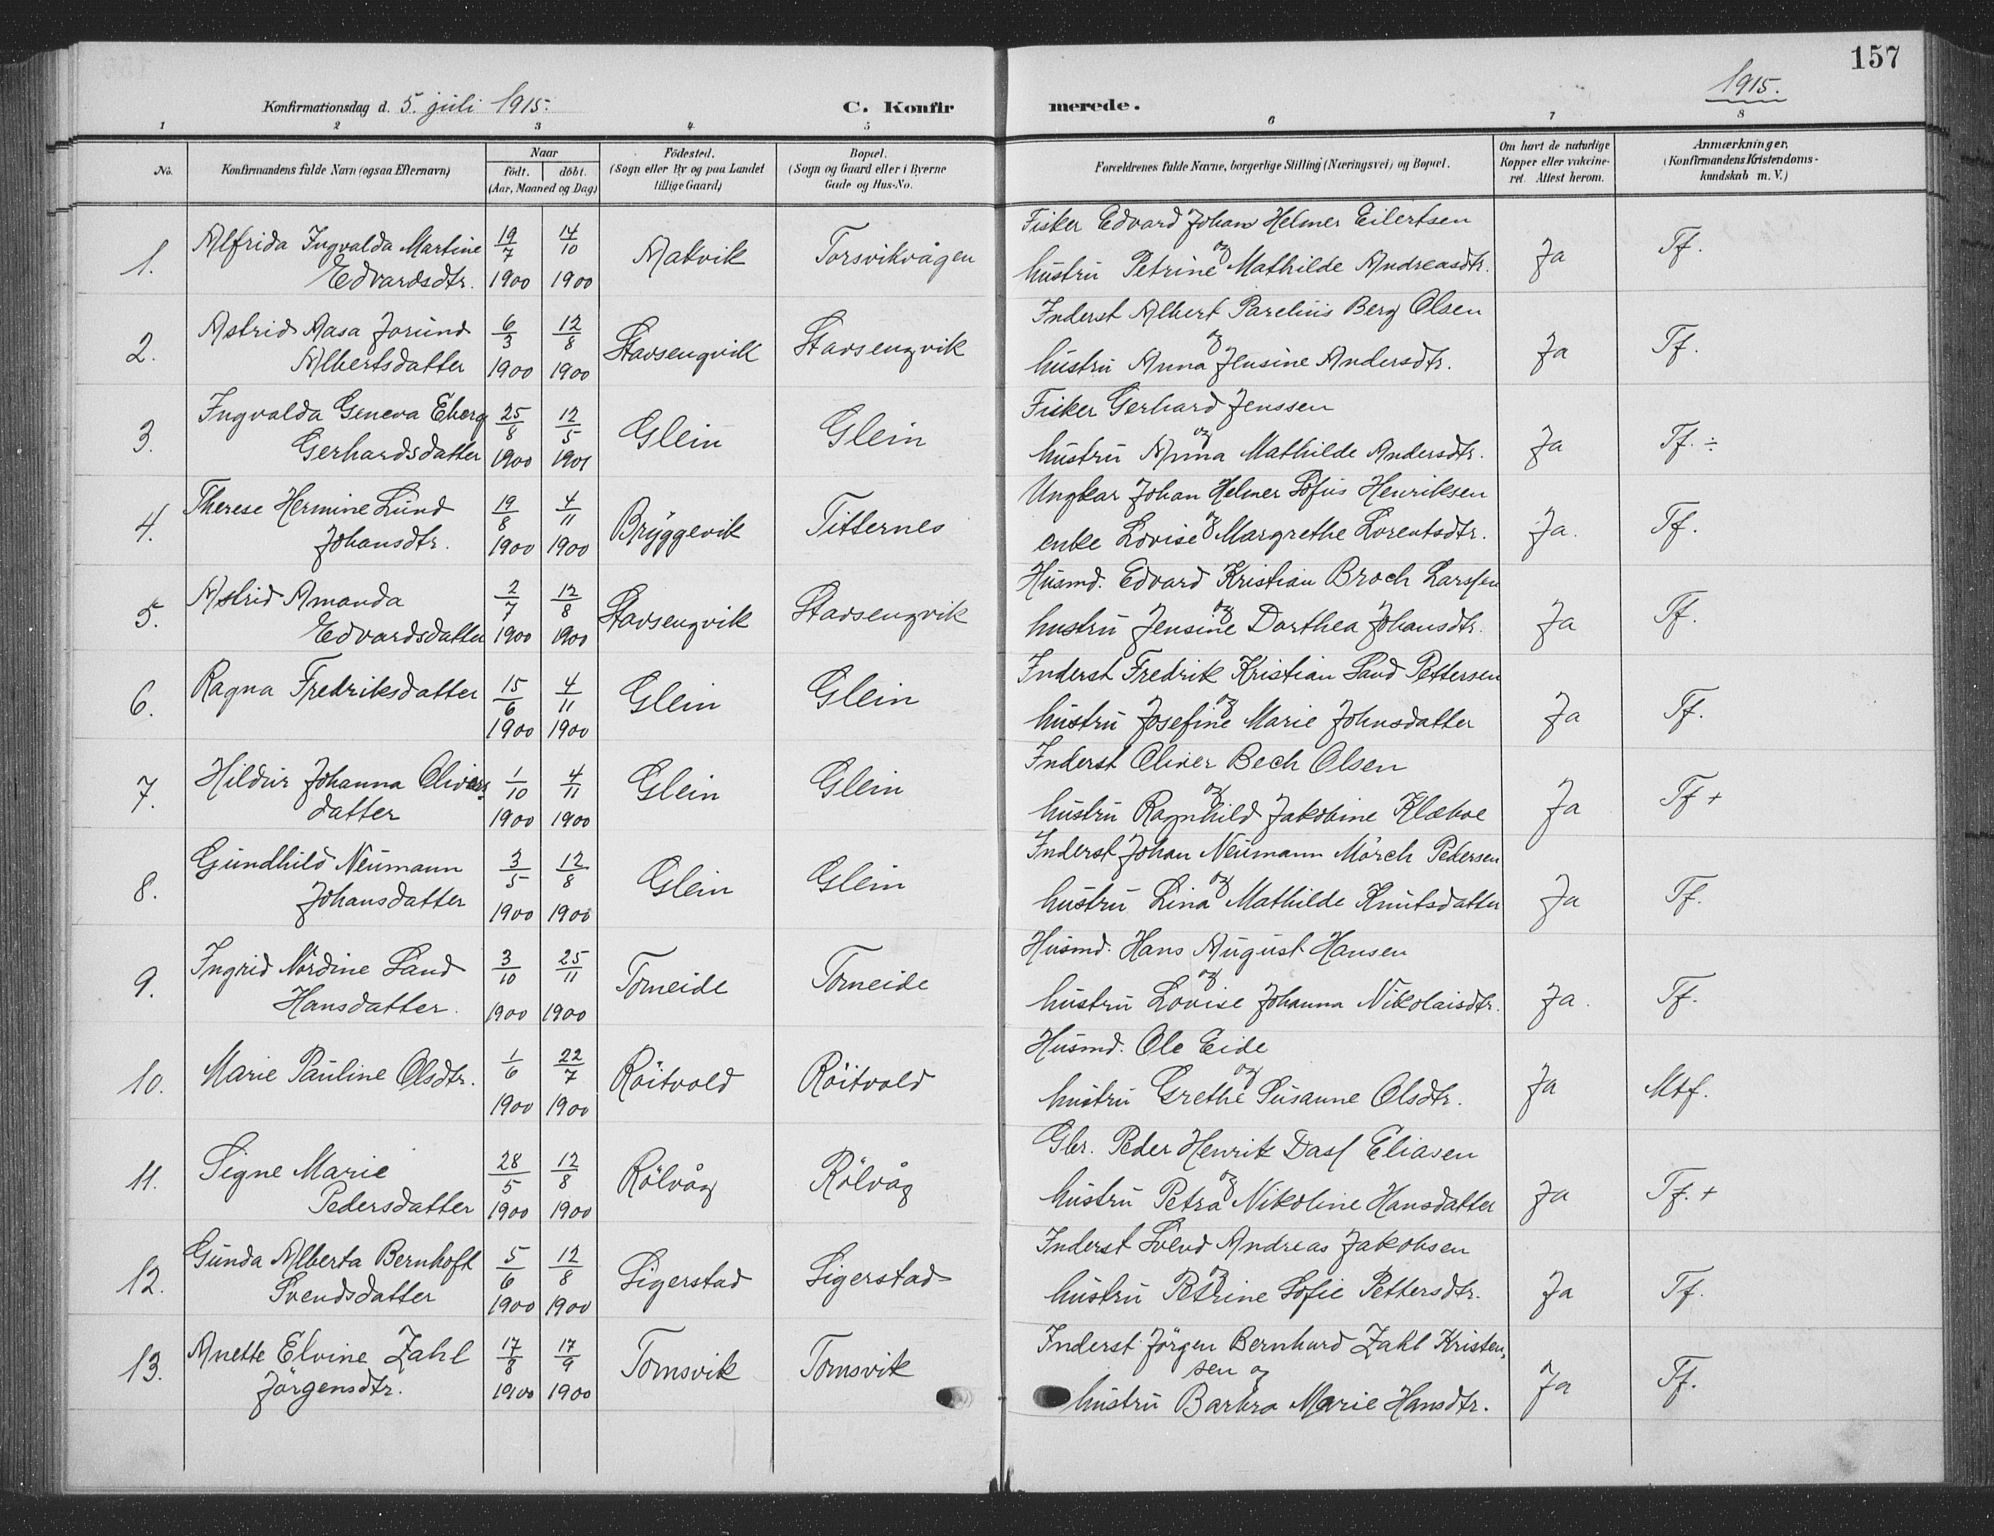 157
1915.
Konfirmationsdag d. 5. juli 1915.
C. Konfir merede.
1 2 3 4 5 6 7 8
No.
Konfirmandens fulde Navn (ogsaa Efternavn)
Naar
födt. döbt.
(Aar, Maaned og Dag)
Födested.
(Sogn eller By og paa Landet
tillige Gaard)
Bopæl.
(Sogn og Gaard eller i Byerne
Gade og Hus-No.
Forældrenes fulde Navne, borgerlige Stilling (Næringsvei) og Bopæl.
Om havt de naturlige
Kopper eller vakcine-
ret. Attest herom.
Anmærkninger,
(Konfirmandens Kristendoms-
kundskab m. V.)
1. Alfrida Ingvalda Martine Edvardsdtr. 19/7 1900 14/10 1900 Aakvik Torsvikvågen
Fisker Edvard Johan Helmer Eilertsen
og
hustru Petrine Mathilde Andreasdtr. Ja Tf.
2. Astrid Aasa Jorund Albertsdatter 6/3 1900 12/8 1900 Stavsengvik Stavsengvik
Inderst Albert Parelius Berg Olsen
og
hustru Anna Jensine Andersdtr. Ja Tf.
3. Ingvalda Geneva Eberg Gerhardsdatter 25/8 1900 12/5 1901 Glein Glein
Fisker Gerhard Jenssen
og
hustru Anna Mathilde Andersdtr. Ja Tf. ÷
4. Therese Hermine Lund Johansdtr. 19/8 1900 4/11 1900 Bryggevik Titternes
Ungkar Johan Helmer Sofus Henriksen
og
enke Lovise Margrethe Lorentsdtr. Ja. Tf.
5. Astrid Amanda Edvardsdatter 2/7 1900 12/8 1900 Stavsengvik Stavsengvik
Husmd. Edvard Kristian Broch Larssen
og
hustru Jensine Dorthea Johansdtr. Ja Tf.
6. Ragna Fredriksdatter 15/6 1900 4/11 1900 Glein Glein
Inderst Fredrik Kristian Sand Pettersen
og
hustru Josefine Marie Johnsdatter Ja Tf.
7. Hildur Johanna Olivers datter 1/10 1900 4/11 1900 Glein Glein
Inderst Oliver Bech Olsen
og
hustru Ragnhild Jakobine Klæboe Ja Tf +
8. Gundhild Neumann Johansdatter 3/5 1900 12/8 1900 Glein Glein
Inderst Johan Neumann Mörch Pedersen
og
hustru Lina Mathilde Knutsdatter Ja Tf.
9. Ingrid Nordine Sand Hansdatter. 3/10 1900 25/11 1900 Tomeide Tomeide
Husmd. Hans August Hansen
og
hustru Lovise Johanna Nikolaisdtr. Ja. Tf.
10. Marie Pauline Olsdtr. 1/6 1900 22/7 1900 Röitvold Röitvold
Husmd. Ole Eide
og
hustru Grethe Susanne Olsdtr. Ja Mtf.
11. Signe Marie Pedersdatter 28/5 1900 12/8 1900 Rölvåg Rölvåg
Gbr. Peder Henrik Dass Eliasen
og
hustru Petra Nikoline Hansdatter Ja Tf. +
12. Gunda Alberta Bernhoft Svendsdatter 5/6 1900 12/8 1900 Sigerstad Sigerstad
Inderst Svend Andreas Jakobsen
og
hustru Petrine Sofie Pettersdtr. Ja Tf.
13. Anette Elvine Zahl Jörgensdtr. 17/8 1900 17/9 1900 Tomsvik Tomsvik
Inderst Jörgen Bernhard Zahl Kristen-
sen og
hustru Barbra Marie Hansdtr. Ja Tf.